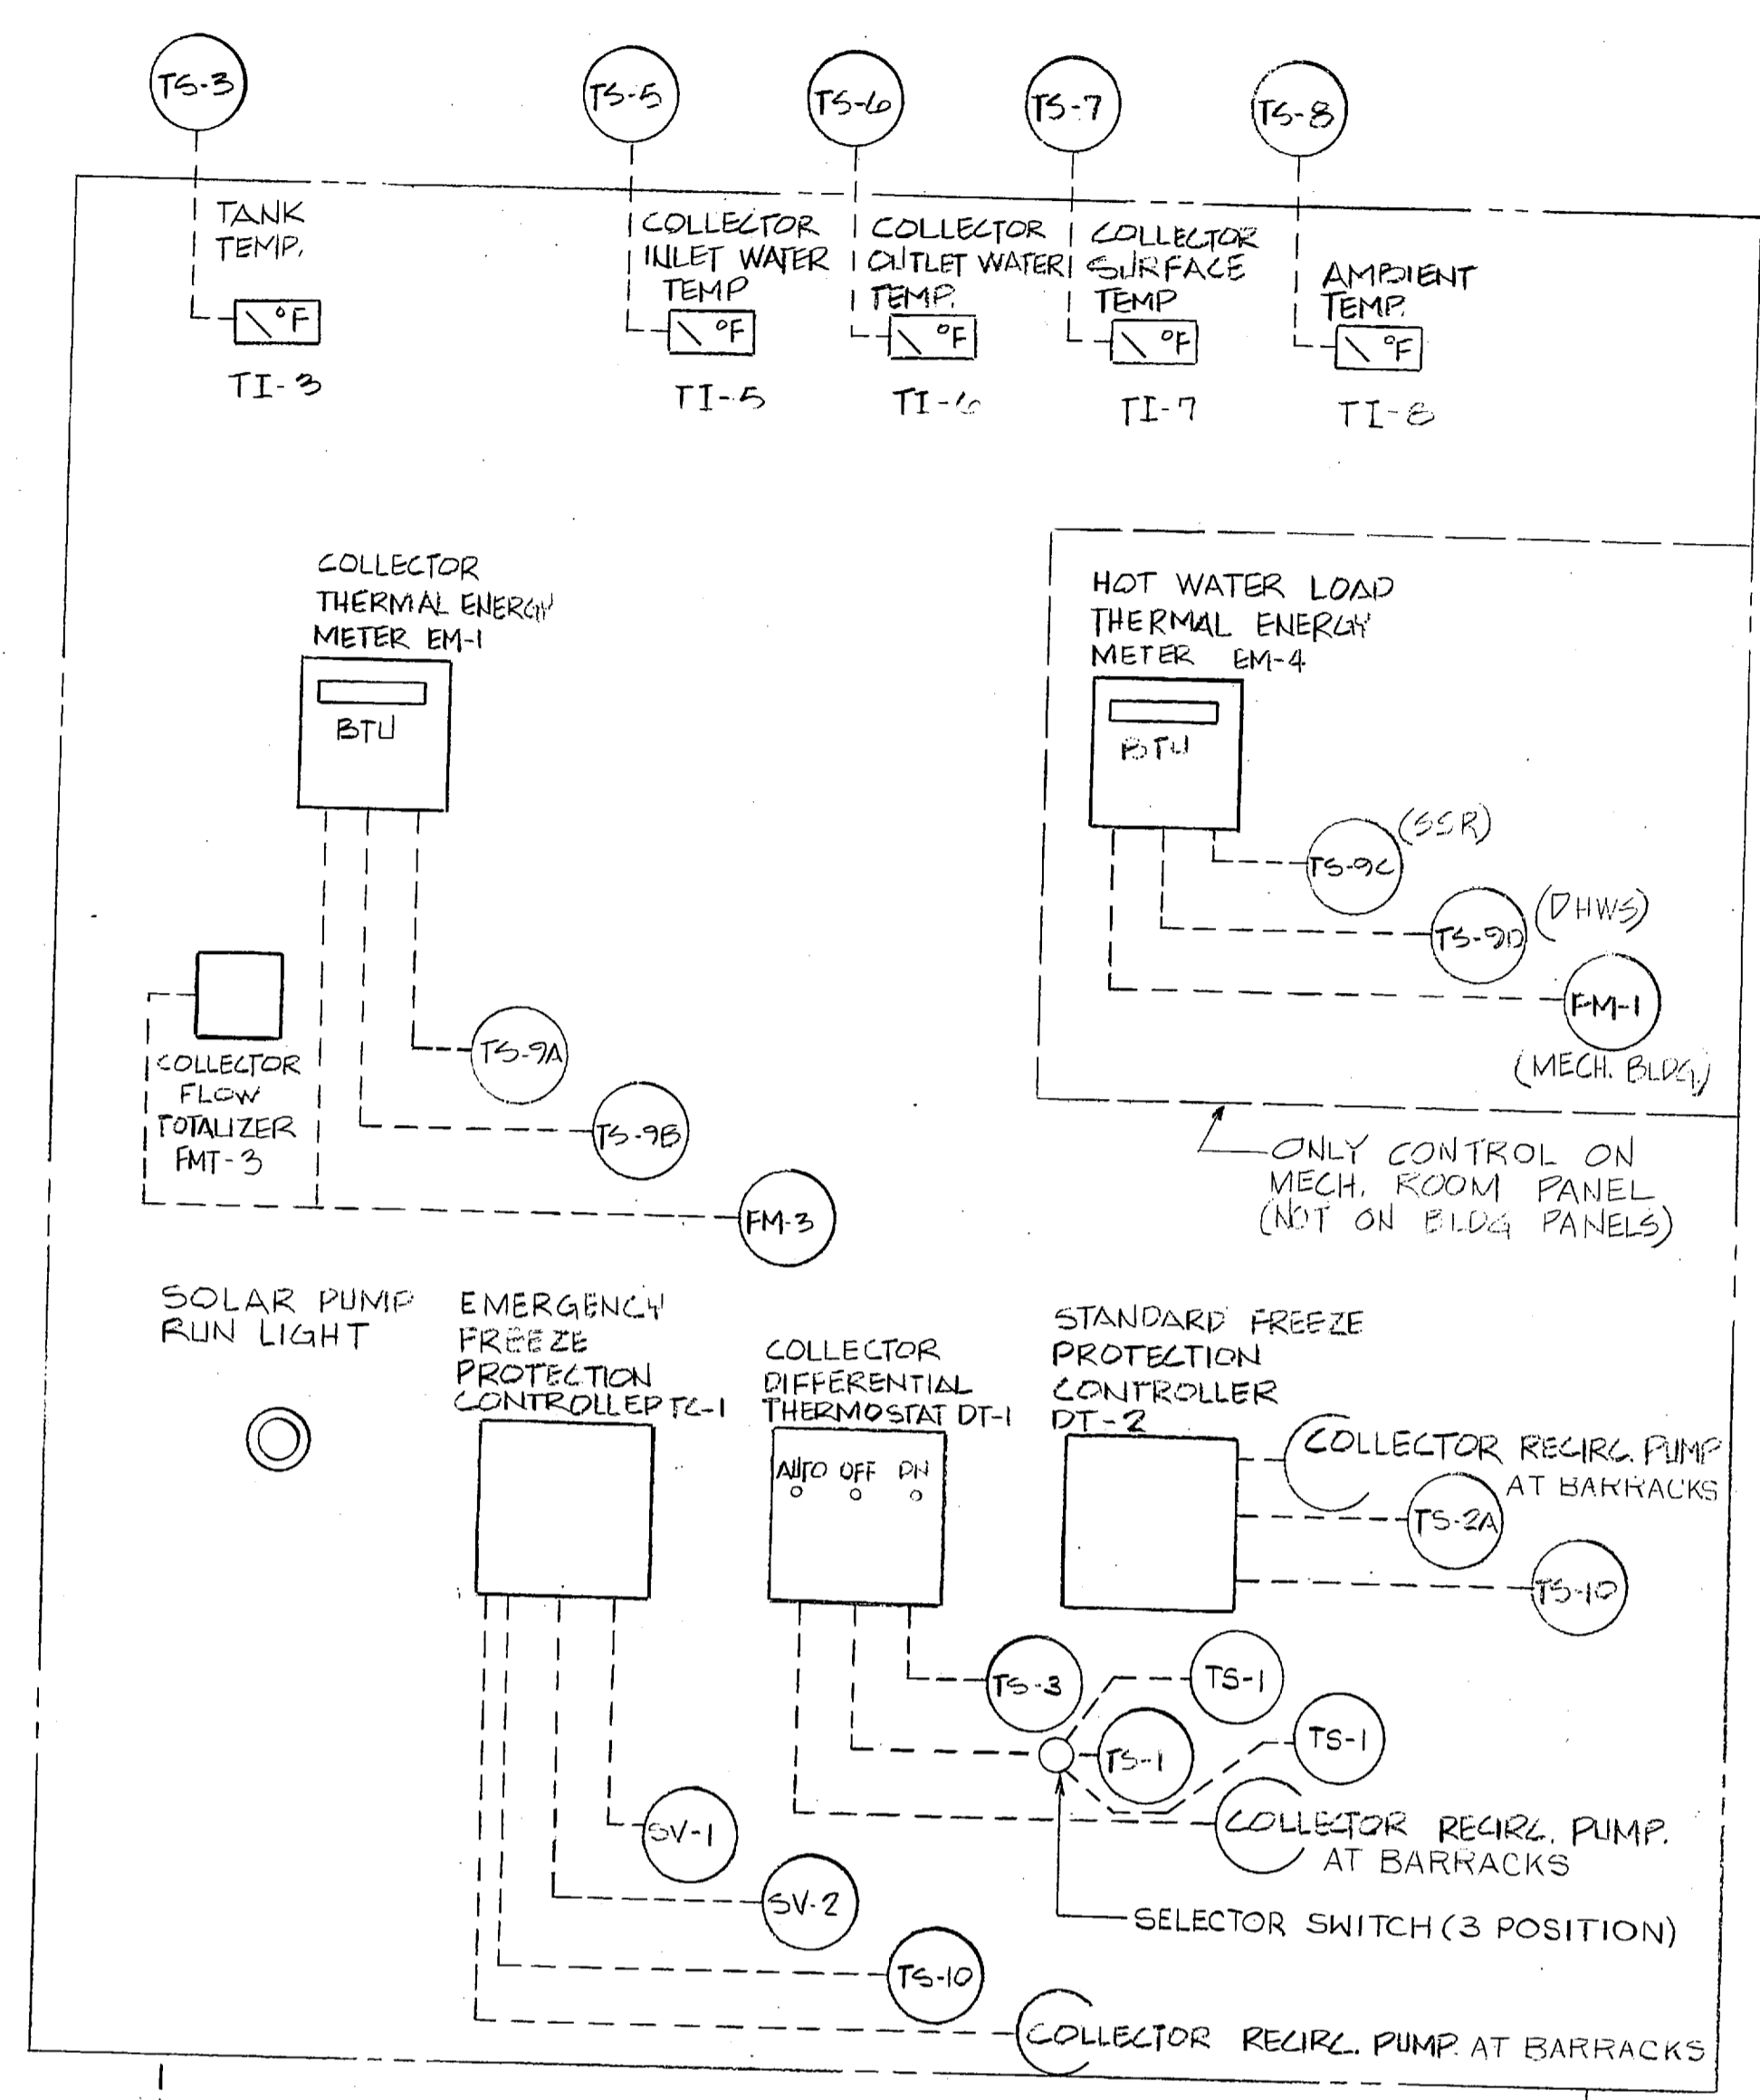 TS-3
TS-5
TS-6
TS-7
TS-8
TANK
TEMP.
°F
TI-3
COLLECTOR
INLET WATER
TEMP
°F
TI-5
COLLECTOR
OUTLET WATER
TEMP.
°F
TI-6
COLLECTOR
SURFACE
TEMP
°F
TI-7
AMBIENT
TEMP.
°F
TI-8
COLLECTOR
THERMAL ENERGY
METER EM-1
BTU
HOT WATER LOAD
THERMAL ENERGY
METER EM-4
BTU
TS-9C
(SSR)
TS-9D
(DHWS)
FM-1
(MECH. BLDG.)
COLLECTOR
FLOW
TOTALIZER
FMT-3
TS-9A
TS-9B
FM-3
ONLY CONTROL ON
MECH. ROOM PANEL
(NOT ON BLDG PANELS)
SOLAR PUMP
RUN LIGHT
EMERGENCY
FREEZE
PROTECTION
CONTROLLER TC-1
COLLECTOR
DIFFERENTIAL
THERMOSTAT DT-1
AUTO OFF ON
STANDARD FREEZE
PROTECTION
CONTROLLER
DT-2
COLLECTOR RECIRC. PUMP
AT BARRACKS
TS-2A
TS-10
TS-3
TS-1
TS-1
TS-1
COLLECTOR RECIRC. PUMP.
AT BARRACKS
SELECTOR SWITCH (3 POSITION)
SV-1
SV-2
TS-10
COLLECTOR RECIRC. PUMP. AT BARRACKS